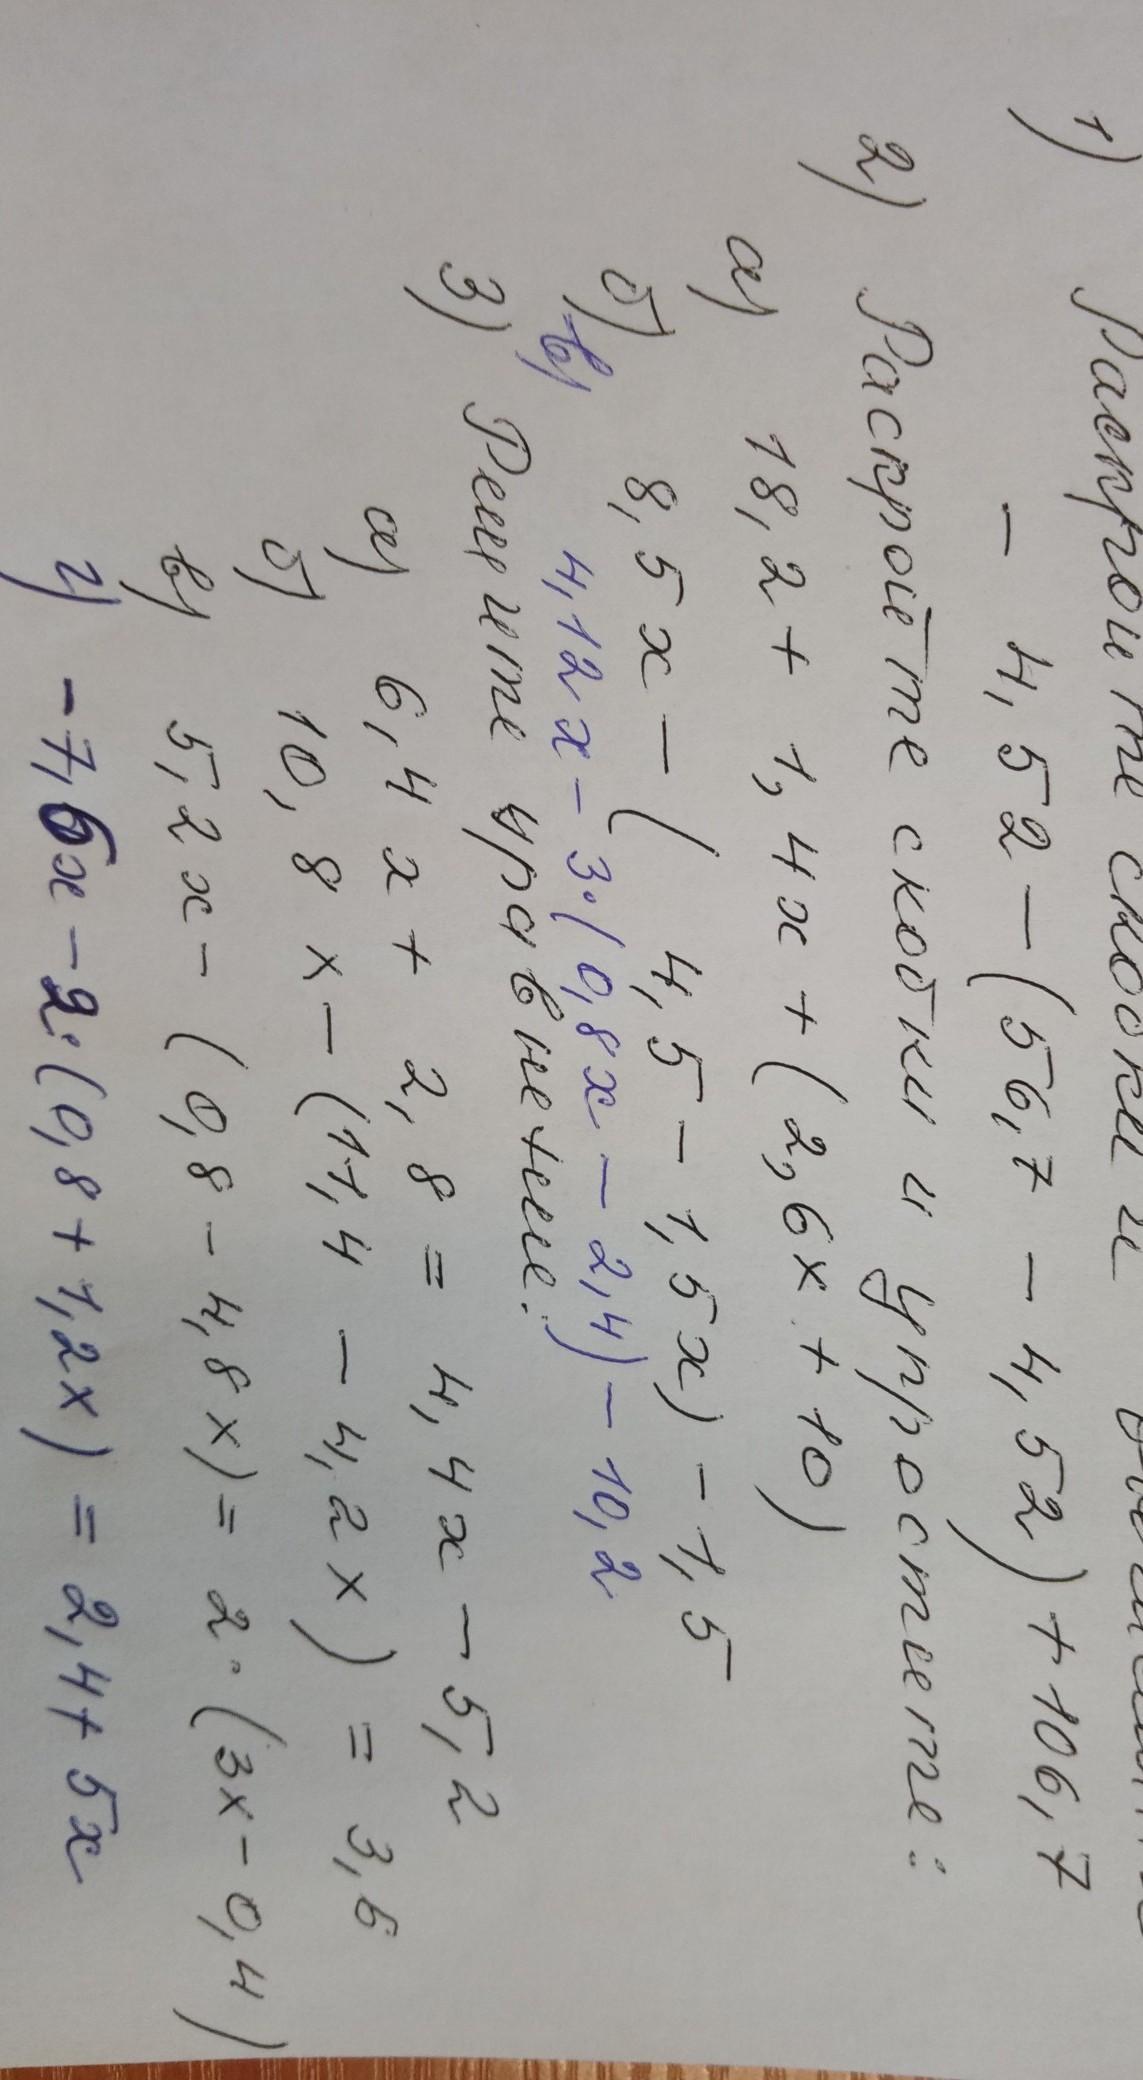 1) Раскройте скобки и
- 4,52 - (56,7 - 4,52) + 106,7
2) Раскройте скобки и упростите:
а) 18,2 + 1,4x + (2,6x + 10)
б) 8,5x - (4,5 - 1,5x) - 1,5
в) 4,12x - 3·(0,8x - 2,4) - 10,2
3) Решите уравнение:
а) 6,4x + 2,8 = 4,4x - 5,2
б) 10,8x - (11,4 - 4,2x) = 3,6
в) 5,2x - (0,8 - 4,8x) = 2·(3x - 0,4)
г) -7,6x - 2·(0,8 + 1,2x) = 2,4 + 5x